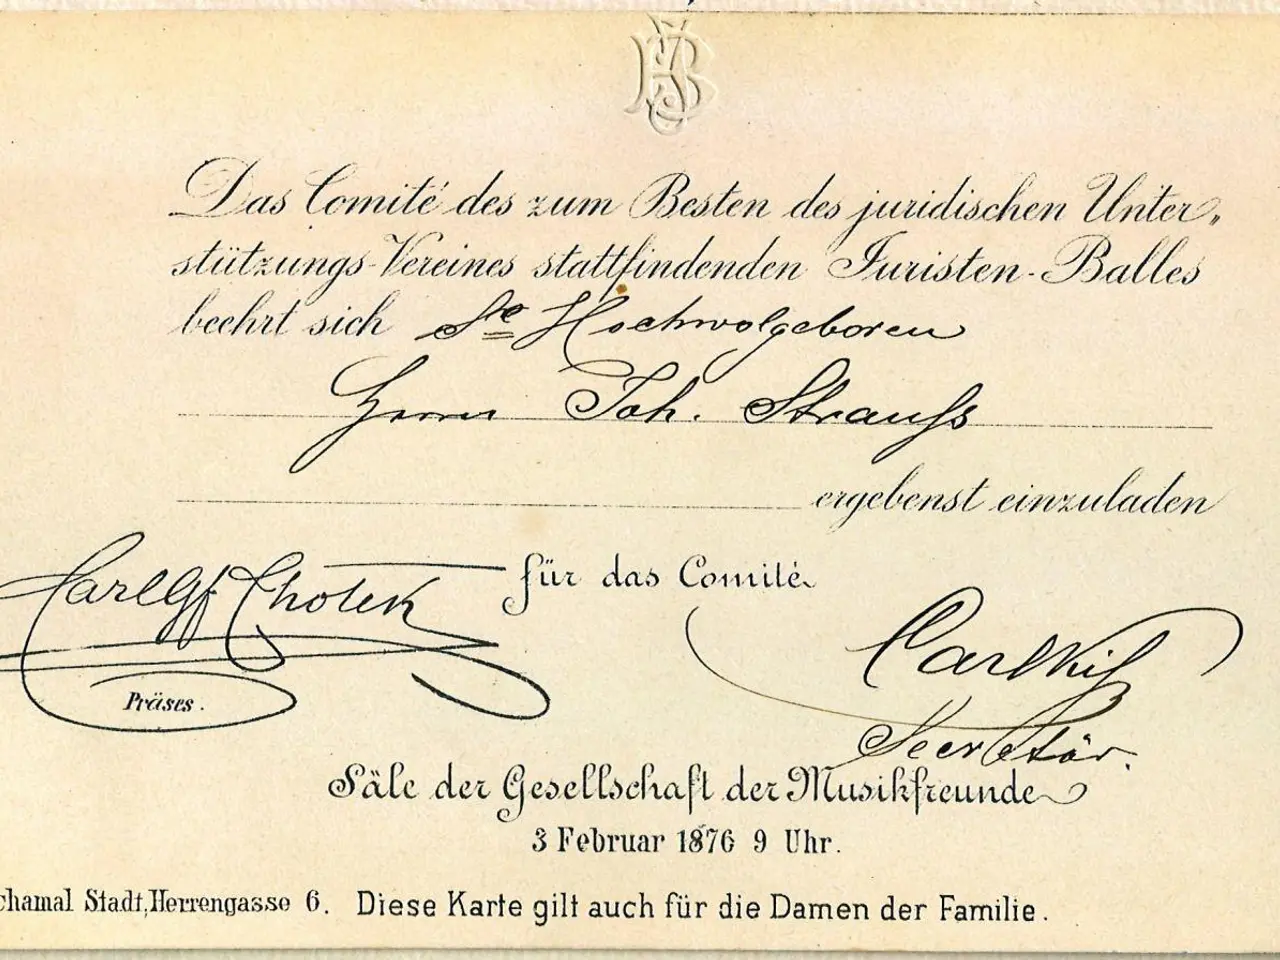 Das Comité des zum Besten des juridischen Unter„
stützungs-Vereines stattfindenden Juristen-Balles
beehrt sich Se Hochwolgeboren
Herrn Joh. Strauss
ergebenst einzuladen
für das Comité
Carl Gf Chotek
Präses.
Carl
Secretär.
Säle der Gesellschaft der Musikfreunde
3 Februar 1876 9 Uhr.
Stadt, Herrengasse 6. Diese Karte gilt auch für die Damen der Familie.